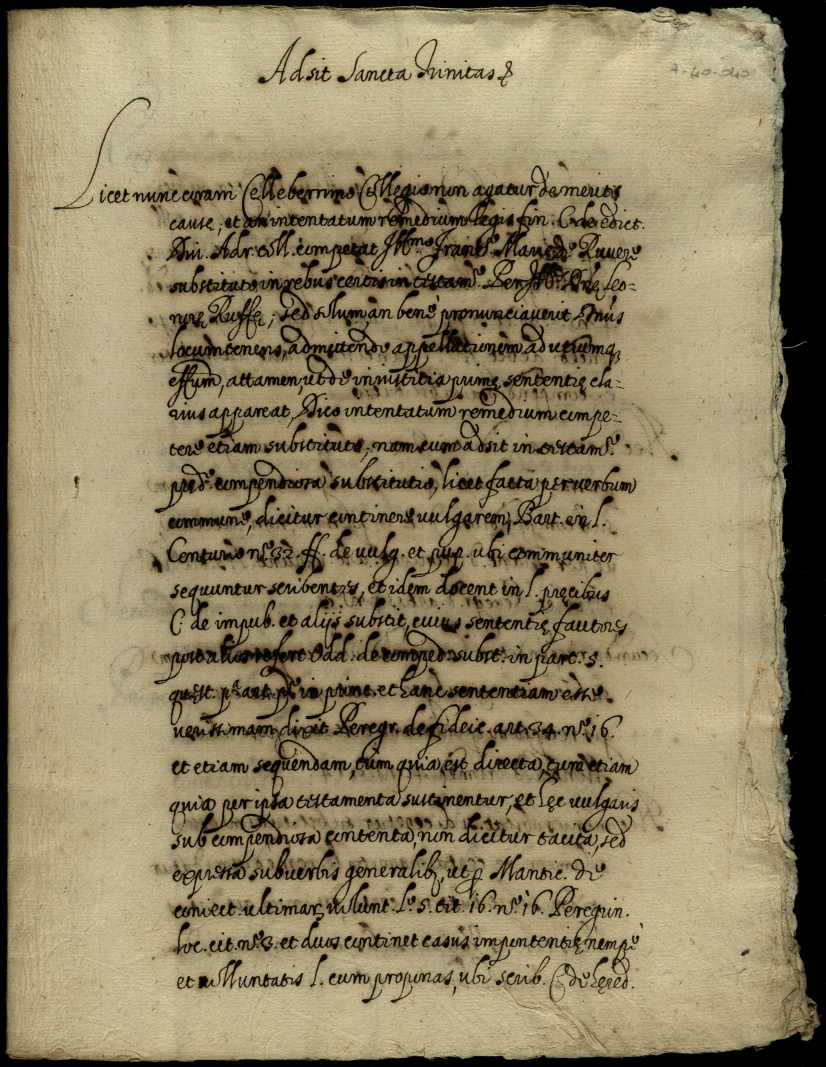 Adsit Sancta Trinitas
A-40-040
Licet nunc coram Celleberrimo Collegio non agatur de meritis
cause, et an intentatum remedium legis fin. C. de edict.
Diui. Adr. toll. competat Ill.mo Franc.o Maria de Ruuere
substituto in rebus certis in testam.o Ill.
nore Ruffę; sed solum, an bene pronunciauerit Dnus
locumtenens, admittendo appellationem ad utrumq
effum, attamen, ut de iniustitia prime sententię cla-
rius appareat, Dico intentatum remedium compe-
tere etiam substituto, nam cum adsit in testam.o
pred.o compendiosa substitutio, licet facta per verbum
commune, dicitur continere vulgarem, Bart. in l.
Centurio n.o 32. ff. de vulg. et pup. ubi communiter
sequuntur scribentes, et idem docent in l. precibus
C. de impub. et alijs substit, cuius sententię fautores
post alios refert Odd. de comped. subst. in part. 5.
quest. p.a art. p.o in princ. et hanc sententiam esse
verissimam dixit Peregr. de fideic. art. 34. n.o 16.
et etiam sequendam, tum quia est directa, tum etiam
quia per ipsa testamenta sustinentur, et hęc vulgaris
sub compendiosa contenta, non dicitur tacita, sed
expressa sub verbis generalib, ut p Mantic. de
coniect. ultimar. volunt. l.o 5. tit. 16. n.o 16. Peregrin.
loc. cit. n.o 3. et duos continet casus impotentię nempe
et volluntatis l. cum proponas, ubi scrib. C. de hęred.